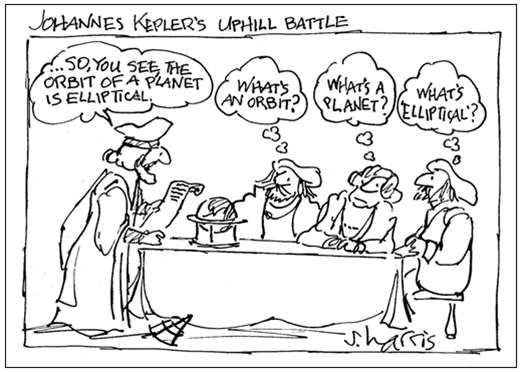 JOHANNES KEPLER'S UPHILL BATTLE
...SO, YOU SEE, THE
ORBIT OF A PLANET
IS ELLIPTICAL.
WHAT'S
AN ORBIT?
WHAT'S A
PLANET?
WHAT'S
'ELLIPTICAL'?
S. Harris